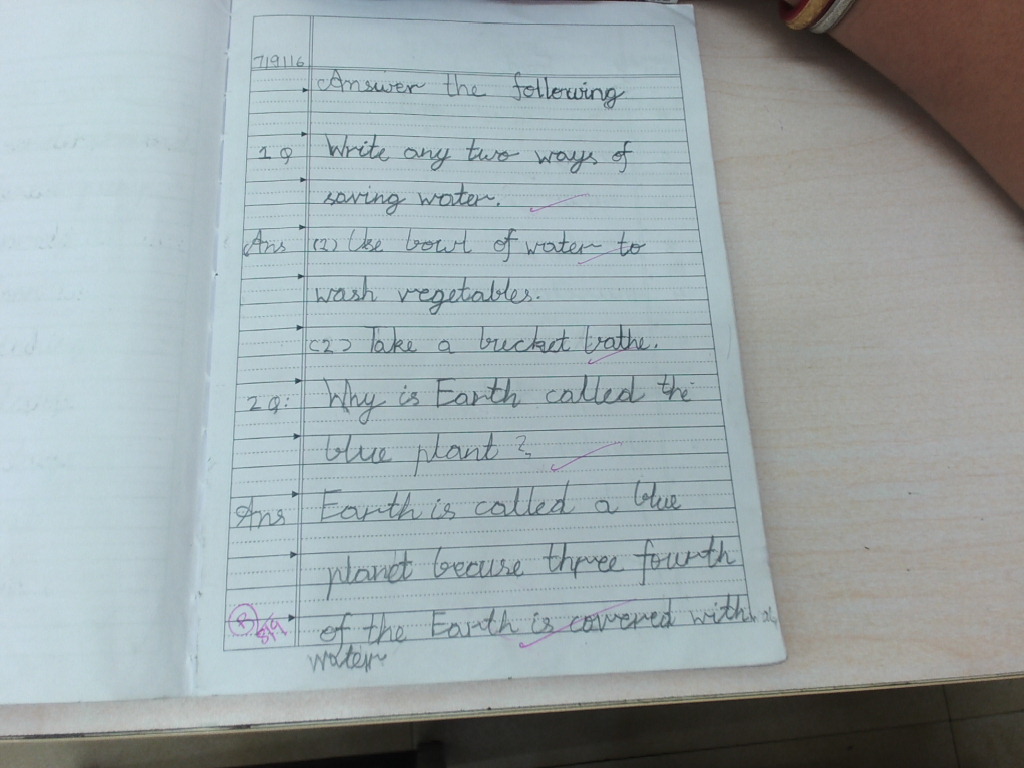 7/9/16
Answer the following
1 Q Write any two ways of
saving water.
Ans (1) Use bowl of water to
wash vegetables.
(2) Take a bucket bathe.
2 Q: Why is Earth called the
blue plant ?
Ans Earth is called a blue
planet becuse three fourth
R 8/9 of the Earth is covered with
water